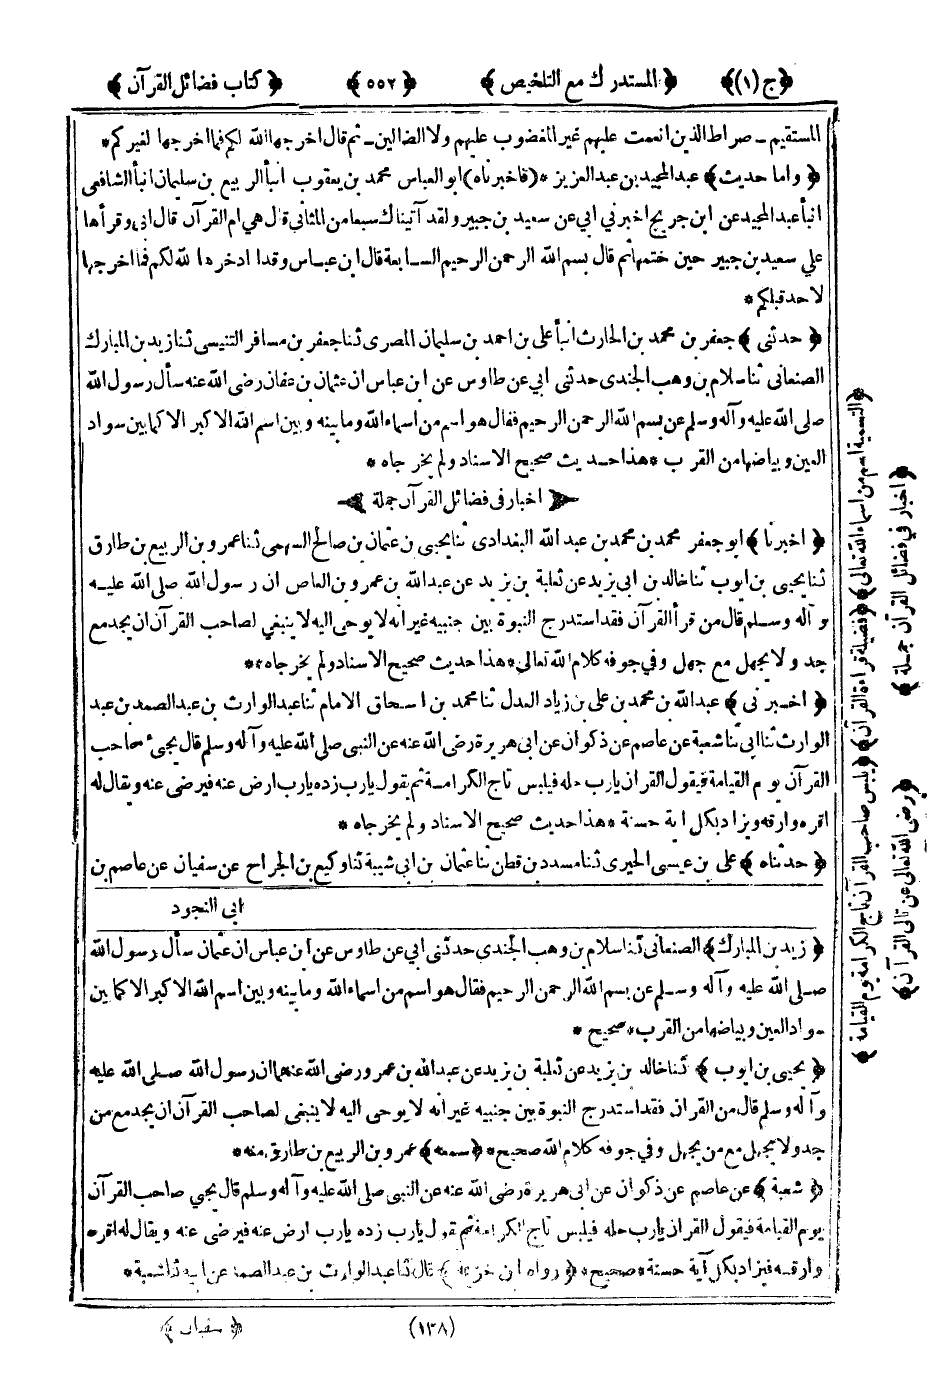 ﴿ج (١)﴾ ﴿المستدرك مع التلخيص﴾ ﴿٥٥٢﴾ ﴿كتاب فضائل القرآن﴾
المستقيم ـ صراط الذين انعمت عليهم غير المغضوب عليهم ولا الضالين ـ ثم قال اخرجها الله لكم فما اخرجها لغيركم *
﴿واما حديث﴾ عبد المجيد بن عبد العزيز * (فاخبرناه) ابو العباس محمد بن يعقوب انبأ الربيع بن سليمان انبأ الشافعي
انبأ عبد المجيد عن ابن جريج اخبرني ابي عن سعيد بن جبير ولقد آتيناك سبعا من المثاني قال هي ام القرآن قال ابي وقرأها
علي سعيد بن جبير حين ختمها ثم قال بسم الله الرحمن الرحيم السابعة قال ابن عباس وقد ادخرها الله لكم فما اخرجها
لاحد قبلكم *
﴿حدثني﴾ جعفر بن محمد بن الحارث انبأ علي بن احمد بن سليمان المصري ثنا جعفر بن مسافر التنيسي ثنا زيد بن المبارك
الصنعاني ثنا سلام بن وهب الجندي حدثني ابي عن طاوس عن ابن عباس ان عثمان بن عفان رضي الله عنه سأل رسول الله
صلى الله عليه وآله وسلم عن بسم الله الرحمن الرحيم فقال هو اسم من اسماء الله وما بينه وبين اسم الله الاكبر الا كما بين سواد
العين وبياضها من القرب * هذا حديث صحيح الاسناد ولم يخرجاه *
اخبار في فضائل القرآن جملة
﴿اخبرنا﴾ ابو جعفر محمد بن محمد بن عبد الله البغدادي ثنا يحيى بن عثمان بن صالح السهمي ثنا عمرو بن الربيع بن طارق
ثنا يحيى بن ايوب ثنا خالد بن ابي يزيد عن ثعلبة بن يزيد عن عبد الله بن عمرو بن العاص ان رسول الله صلى الله عليه
وآله وسلم قال من قرأ القرآن فقد استدرج النبوة بين جنبيه غير انه لا يوحى اليه لا ينبغي لصاحب القرآن ان يجد مع
جد ولا يجهل مع جهل وفي جوفه كلام الله تعالى * هذا حديث صحيح الاسناد ولم يخرجاه **
﴿اخبرني﴾ عبد الله بن محمد بن علي بن زياد العدل ثنا محمد بن اسحاق الامام ثنا عبد الوارث بن عبد الصمد بن عبد
الوارث ثنا ابي ثنا شعبة عن عاصم عن ذكوان عن ابي هريرة رضي الله عنه عن النبي صلى الله عليه وآله وسلم قال يجيء صاحب
القرآن يوم القيامة فيقول القران يارب حله فيلبس تاج الكرامة ثم يقول يارب زده يارب ارض عنه فيرضى عنه ويقال له
اقره وارقه ويزاد بكل اية حسنة * هذا حديث صحيح الاسناد ولم يخرجاه *
﴿حدثناه﴾ علي بن عيسى الحيري ثنا مسدد بن قطن ثنا عثمان بن ابي شيبة ثنا وكيع بن الجراح عن سفيان عن عاصم بن
ابي النجود
﴿زيد بن المبارك﴾ الصنعاني ثنا سلام بن وهب الجندي حدثني ابي عن طاوس عن ابن عباس ان عثمان سأل رسول الله
صلى الله عليه وآله وسلم عن بسم الله الرحمن الرحيم فقال هو اسم من اسماء الله وما بينه وبين اسم الله الاكبر الا كما بين
سواد العين وبياضها من القرب * صحيح *
﴿يحيى بن ايوب﴾ ثنا خالد بن يزيد عن ثعلبة بن يزيد عن عبد الله بن عمرو رضي الله عنهما ان رسول الله صلى الله عليه
وآله وسلم قال من القران فقد استدرج النبوة بين جنبيه غير انه لا يوحى اليه لا ينبغي لصاحب القرآن ان يجد مع من
جد ولا يجهل مع من يجهل وفي جوفه كلام الله صحيح * ﴿سمعه﴾ عمرو بن الربيع بن طارق منه *
﴿شعبة﴾ عن عاصم عن ذكوان عن ابي هريرة رضي الله عنه عن النبي صلى الله عليه وآله وسلم قال يجي صاحب القرآن
يوم القيامة فيقول القران يارب حله فيلبس تاج الكرامة ثم يقول يارب زده يارب ارض عنه فيرضى عنه ويقال له اقره
وارقه فيزاد بكل آية حسنة * صحيح * ﴿رواه ابن خزيمة﴾ قال ثنا عبد الوارث بن عبد الصمد عن ابيه ثنا شعبة *
(١٣٨) ﴿سفيان﴾
﴿التسمية اسم من اسماء الله تعالى﴾ ﴿فضيلة قراءة القرآن﴾ ﴿يلبس صاحب القرآن تاج الكرامة يوم القيامة﴾
﴿اخبار في فضائل القرآن جملة﴾ ﴿رضى الله تعالى عن تالى القرآن﴾